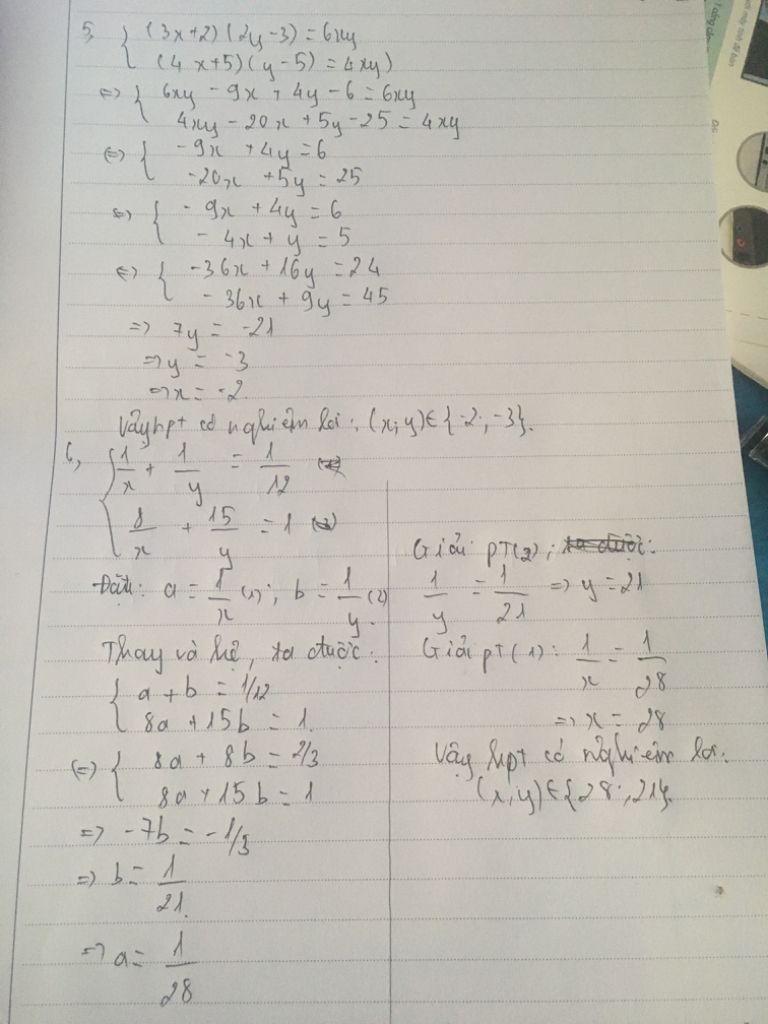 5, { (3x+2)(2y-3) = 6xy
(4x+5)(y-5) = 4xy)
<=> { 6xy - 9x + 4y - 6 = 6xy
4xy - 20x + 5y - 25 = 4xy
<=> { -9x + 4y = 6
-20x + 5y = 25
<=> { -9x + 4y = 6
-4x + y = 5
<=> { -36x + 16y = 24
-36x + 9y = 45
=> 7y = -21
=> y = -3
=> x = -2.
Vậy hpt có nghiệm là: (x;y) ∈ {-2;-3}.
6, { 1/x + 1/y = 1/12
8/x + 15/y = 1
Đặt: a = 1/x (1); b = 1/y (2)
Thay và hệ, ta được:
{ a + b = 1/12
8a + 15b = 1.
<=> { 8a + 8b = 2/3
8a + 15b = 1
=> -7b = -1/3
=> b = 1/21.
=> a = 1/28
Giải PT(2):
1/y = 1/21 => y = 21
Giải PT(1): 1/x = 1/28
=> x = 28
Vậy hpt có nghiệm là:
(x,y) ∈ {28;21}.